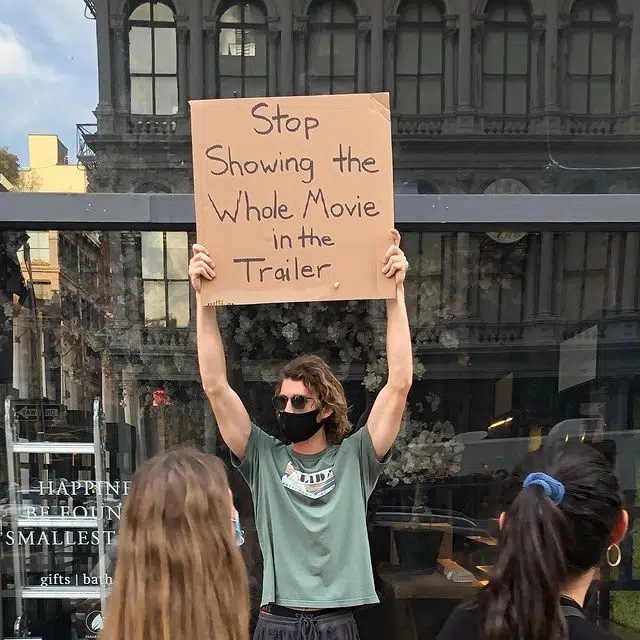 Stop
Showing the
Whole Movie
in the
Trailer
HAPPINE
BE FOUN
SMALLEST
gifts | bath